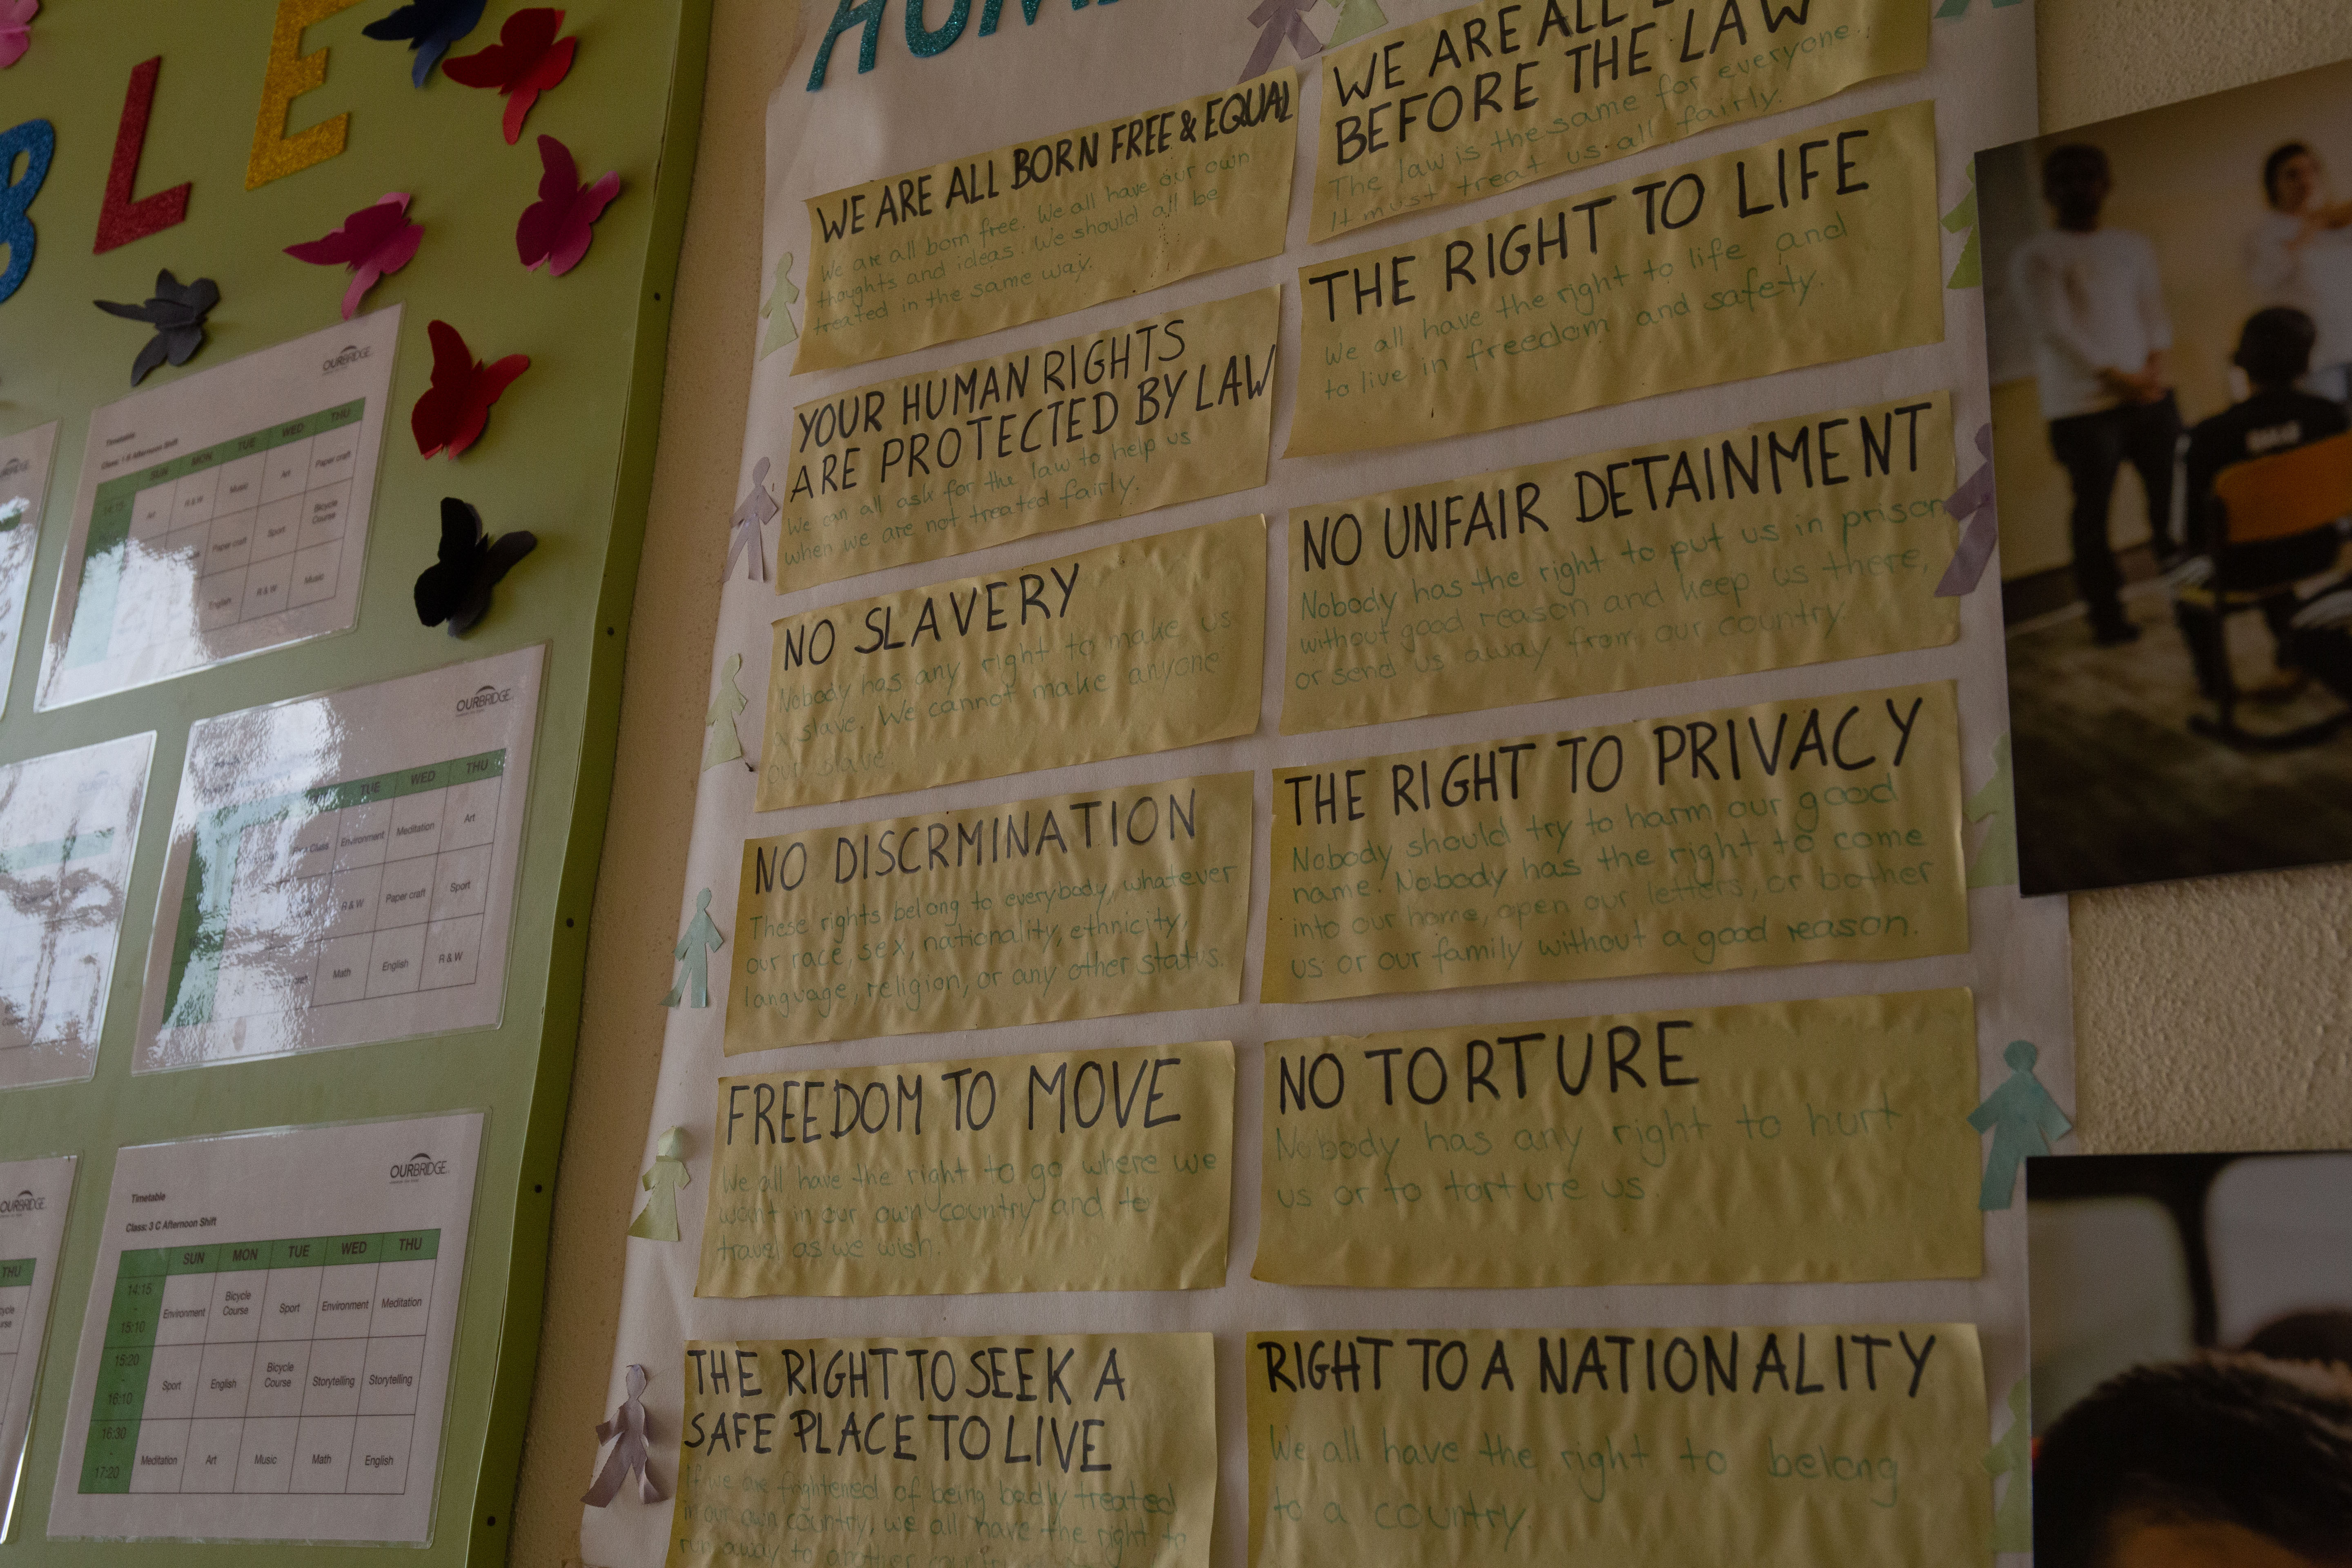 BLE
OURBRIDGE
Timetable
Class: 1 B Afternoon Shift
SUN MON TUE WED THU
Art R & W Music Art Paper craft
Paper craft Sport Bicycle Course
English R & W Music
OURBRIDGE
TUE WED THU
Environment Meditation Art
R & W Paper craft Sport
Math English R & W
OURBRIDGE
Timetable
Class: 3 C Afternoon Shift
SUN MON TUE WED THU
14:15 - 15:10 Environment Bicycle Course Sport Environment Meditation
15:20 - 16:10 Sport English Bicycle Course Storytelling Storytelling
16:30 - 17:20 Meditation Art Music Math English
OURBRIDGE
THU
HUM
WE ARE ALL BORN FREE & EQUAL
We are all born free. We all have our own
thoughts and ideas. We should all be
treated in the same way.
YOUR HUMAN RIGHTS
ARE PROTECTED BY LAW
We can all ask for the law to help us
when we are not treated fairly.
NO SLAVERY
Nobody has any right to make us
a slave. We cannot make anyone
our slave.
NO DISCRMINATION
These rights belong to everybody, whatever
our race, sex, nationality, ethnicity,
language, religion, or any other status.
FREEDOM TO MOVE
We all have the right to go where we
want in our own country and to
travel as we wish.
THE RIGHT TO SEEK A
SAFE PLACE TO LIVE
If we are frightened of being badly treated
in our own country, we all have the right to
run away to another
WE ARE ALL
BEFORE THE LAW
The law is the same for everyone.
It must treat us all fairly.
THE RIGHT TO LIFE
We all have the right to life and
to live in freedom and safety.
NO UNFAIR DETAINMENT
Nobody has the right to put us in prison
without good reason and keep us there,
or send us away from our country.
THE RIGHT TO PRIVACY
Nobody should try to harm our good
name. Nobody has the right to come
into our home, open our letters, or bother
us or our family without a good reason.
NO TORTURE
Nobody has any right to hurt
us or to torture us.
RIGHT TO A NATIONALITY
We all have the right to belong
to a country.